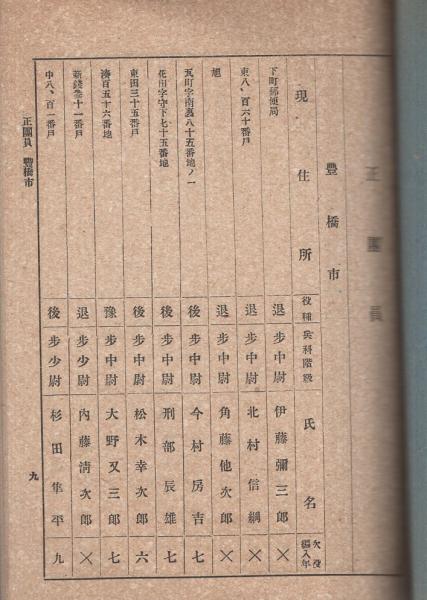 正團員
豐橋市
現住所 役種 兵科階級 氏名 欠役編入年
下町郵便局 退 步中尉 伊藤彌三郎 ×
東八、百六十番戶 退 步中尉 北村信綱 ×
旭 退 步中尉 角藤他次郎 ×
瓦町字南裏八十五番地ノ一 後 步中尉 今村房吉 七
花田字守下七十五番地 後 步中尉 刑部辰雄 七
東田三十五番戶 後 步中尉 松木幸次郎 六
湊百五十六番地 豫 步中尉 大野又三郎 七
新錢町十一番戶 退 步少尉 內藤淸次郎 ×
中八、百一番戶 後 步少尉 杉田隼平 九
正團員 豐橋市
九